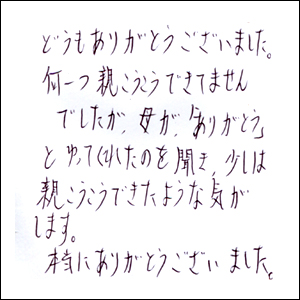 どうもありがとうございました。
何一つ親こうこうできてません
でしたが、母が、「ありがとう」
とゆってくれたのを聞き、少しは
親こうこうできたような気が
します。
本当にありがとうございました。